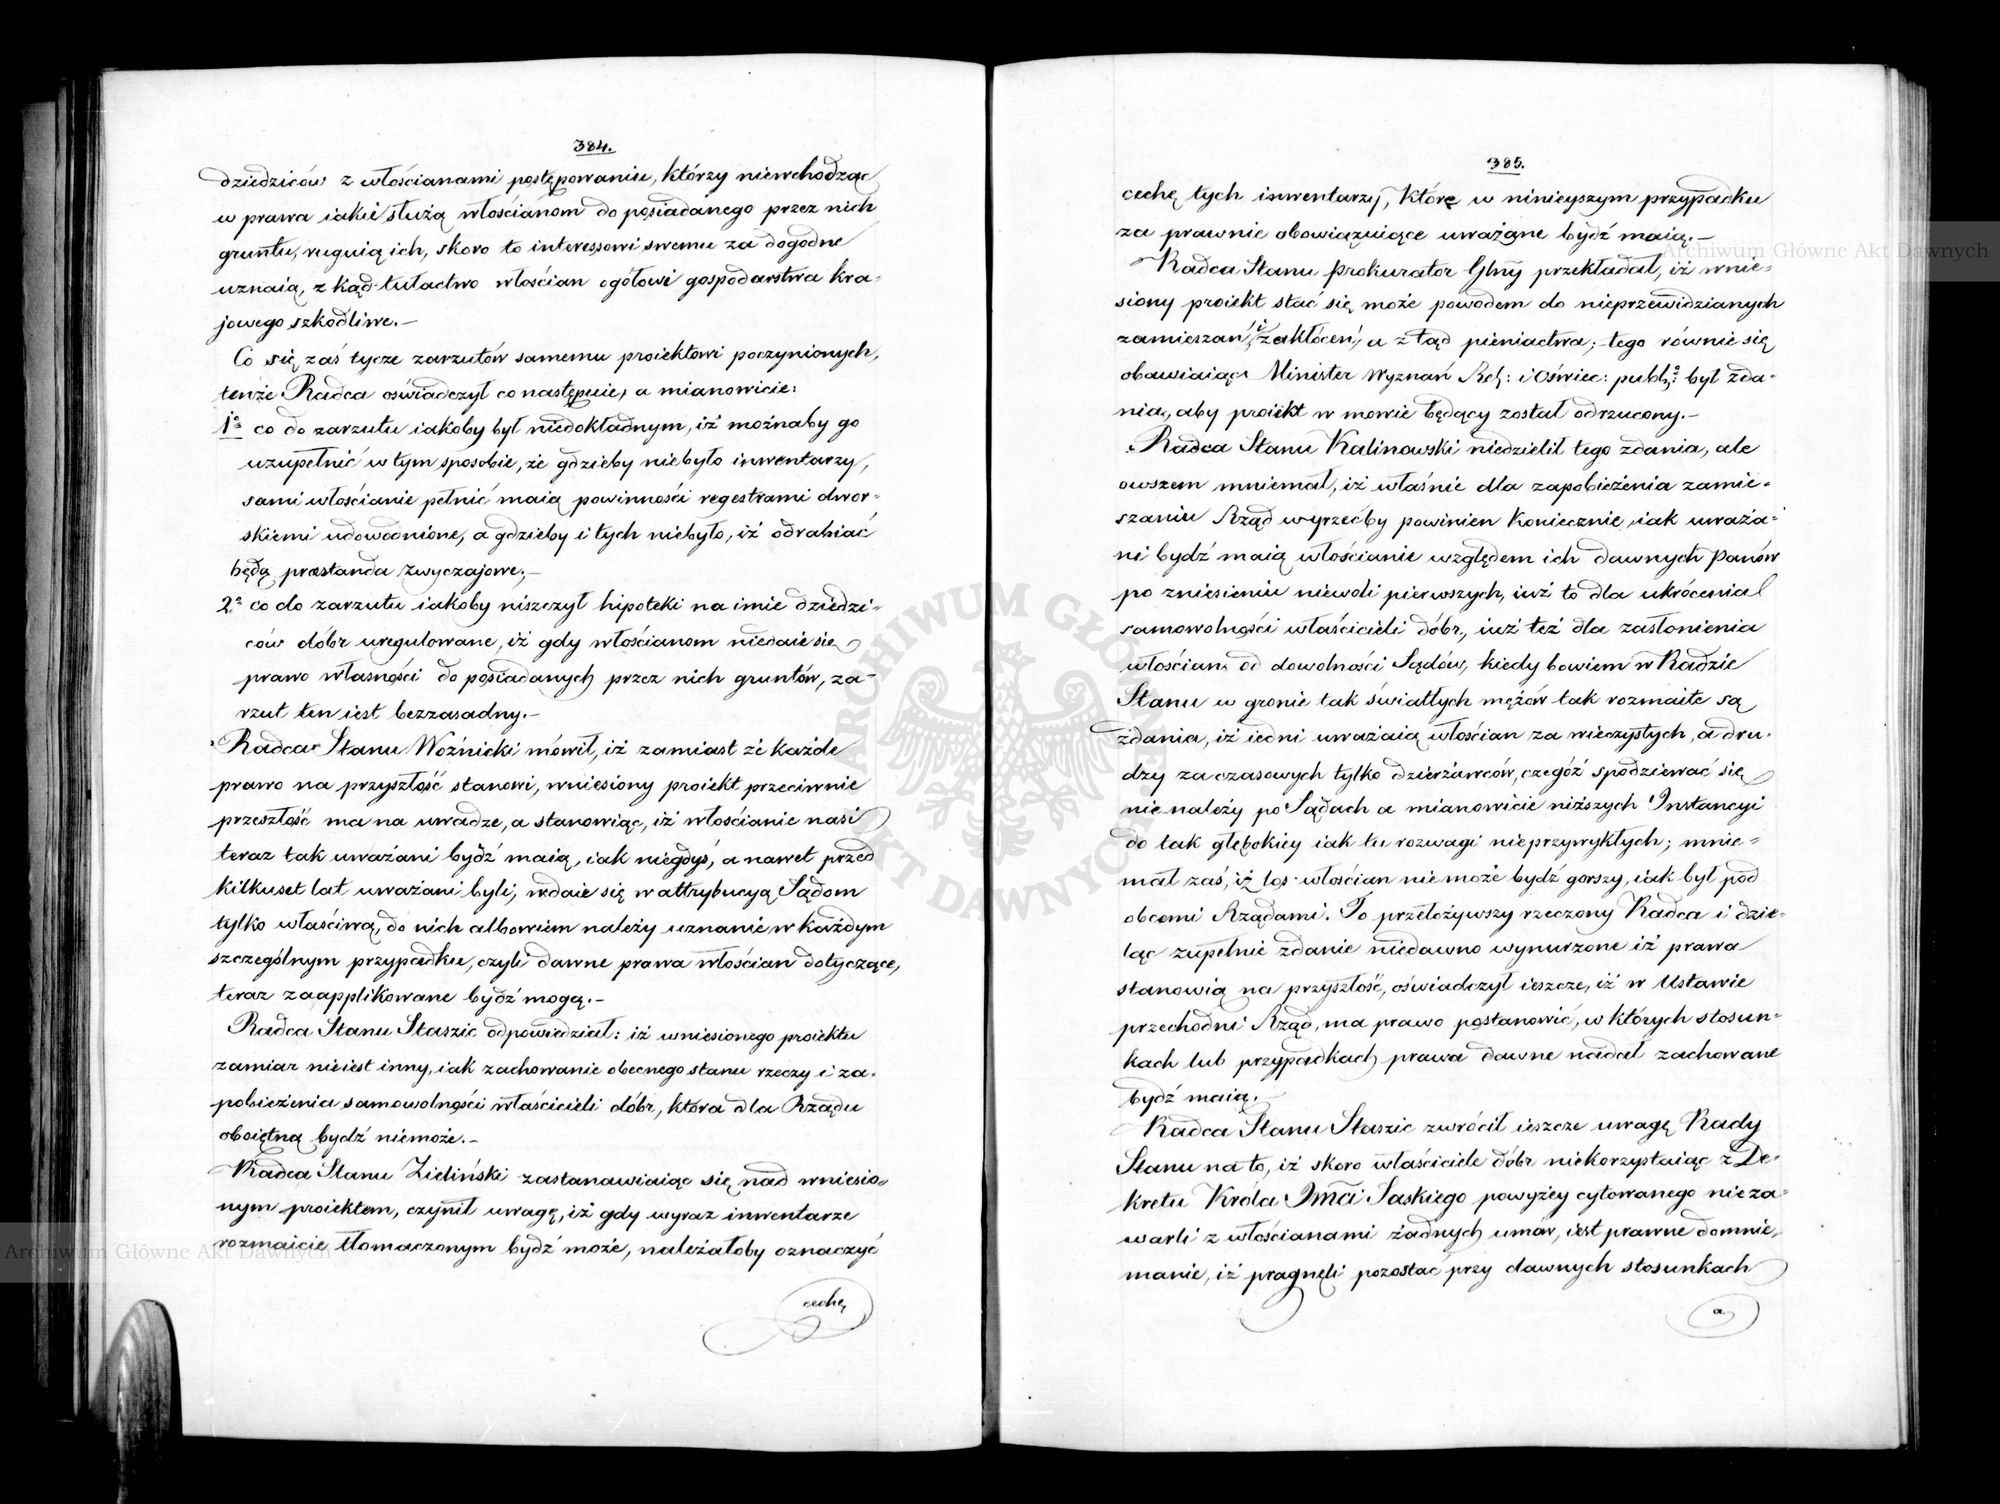 384.
dziedziców z włościanami postępowaniu, którzy niewchodząc
w prawa iakie służą włościanom do posiadanego przez nich
gruntu, ruguią ich, skoro to interessowi swemu za dogodne
uznaią, z kąd tułactwo włoscian ogółowi gospodarstwa kra-
jowego szkodliwe.—
Co się zaś tycze zarzutów samemu proiektowi poczynionych,
tenże Radca oświadczył co następuie, a mianowicie:
1o co do zarzutu iakoby był niedokładnym, iż możnaby go
uzupełnić w tym sposobie, że gdzieby niebyło inwentarzy,
sami włościanie pełnić maią powinności regestrami dwor-
skiemi udowodnione, a gdzieby i tych niebyło, iż odrabiać
będą præstanda zwyczajowe.—
2o co do zarzutu iakoby niszczył hipoteki na imie dziedzi-
ców dóbr uregulowane, iż gdy włościanom niedaie się
prawo własności do posiadanych przez nich gruntów, za-
rzut ten iest bezzasadny.—
Radca Stanu Woźnicki mówił, iż zamiast że każde
prawo na przyszłość stanowi, wniesiony proiekt przeciwnie
przeszłość ma na uwadze, a stanowiąc, iż włościanie nasi
teraz tak uważani bydź maią, iak niegdyś, a nawet przed
kilkuset lat uważani byli, wdaie się w attrybucyą Sądom
tylko właściwą, do nich albowiem należy uznanie w każdym
szczególnym przypadku, czyli dawne prawa włościan dotyczące,
teraz zaapplikowane bydź mogą.—
Radca Stanu Staszic odpowiedział: iż wniesionego proiektu
zamiar nieiest inny, iak zachowanie obecnego stanu rzeczy i za-
pobieżenia samowolności właścicieli dóbr, która dla Rządu
oboiętną bydź niemoże.—
Radca Stanu Zieliński zastanawiaiąc się nad wniesio-
nym proiektem, czynił uwagę, iż gdy wyraz inwentarze
rozmaicie tłomaczonym bydź może, należałoby oznaczyć
cechę
385.
cechę tych inwentarzy, które w ninieyszym przypadku
za prawnie obowiązuiące uważane bydź maią.—
Radca Stanu Prokurator Glny przekładał, iż wnie-
siony proiekt stać się może powodem do nieprzewidzianych
zamieszań i zakłóceń, a z tąd pieniactwa; tego równie się
obawiaiąc Minister Wyznań Rel: i Oświec: publ: był zda-
nia, aby proiekt w mowie będący został odrzucony.—
Radca Stanu Kalinowski niedzielił tego zdania, ale
owszem mniemał, iż właśnie dla zapobieżenia zamie-
szaniu Rząd wyrzecby powinien koniecznie, iak uważa-
ni bydź maią włościanie względem ich dawnych Panów
po zniesieniu niewoli pierwszych, iuż to dla ukrócenia
samowolności właścicieli dóbr, iuż też dla zasłonienia
włościan od dowolności Sądów, kiedy bowiem w Radzie
Stanu w gronie tak światłych mężów tak rozmaite są
zdania, iż iedni uważaią włościan za wieczystych, a dru-
dzy za czasowych tylko dzierżawców, czegóż spodziewać się
nie należy po Sądach a mianowicie niższych Instancyi
do tak głębokiey iak tu rozwagi nieprzywykłych; mnie-
mał zaś, iż los włościan nie może bydź gorszy, iak był pod
obcemi Rządami. To przełożywszy rzeczony Radca i dzie-
ląc zupełnie zdanie niedawno wynurzone iż prawa
stanowią na przyszłość, oświadczył ieszcze, iż w Ustawie
przechodni Rząd, ma prawo postanowić, w których stosun-
kach lub przypadkach prawa dawne nadal zachowane
bydź maią.—
Radca Stanu Staszic zwrócił ieszcze uwagę Rady
Stanu na to, iż skoro właściciele dóbr niekorzystaiąc z De-
kretu Króla Jmci Saskiego powyżey cytowanego nieza-
warli z włościanami żadnych umów, iest prawne domnie-
manie, iż pragnęli pozostać przy dawnych stosunkach
a
Archiwum Główne Akt Dawnych
Archiwum Główne Akt Dawnych
ARCHIWUM GŁÓWNE AKT DAWNYCH